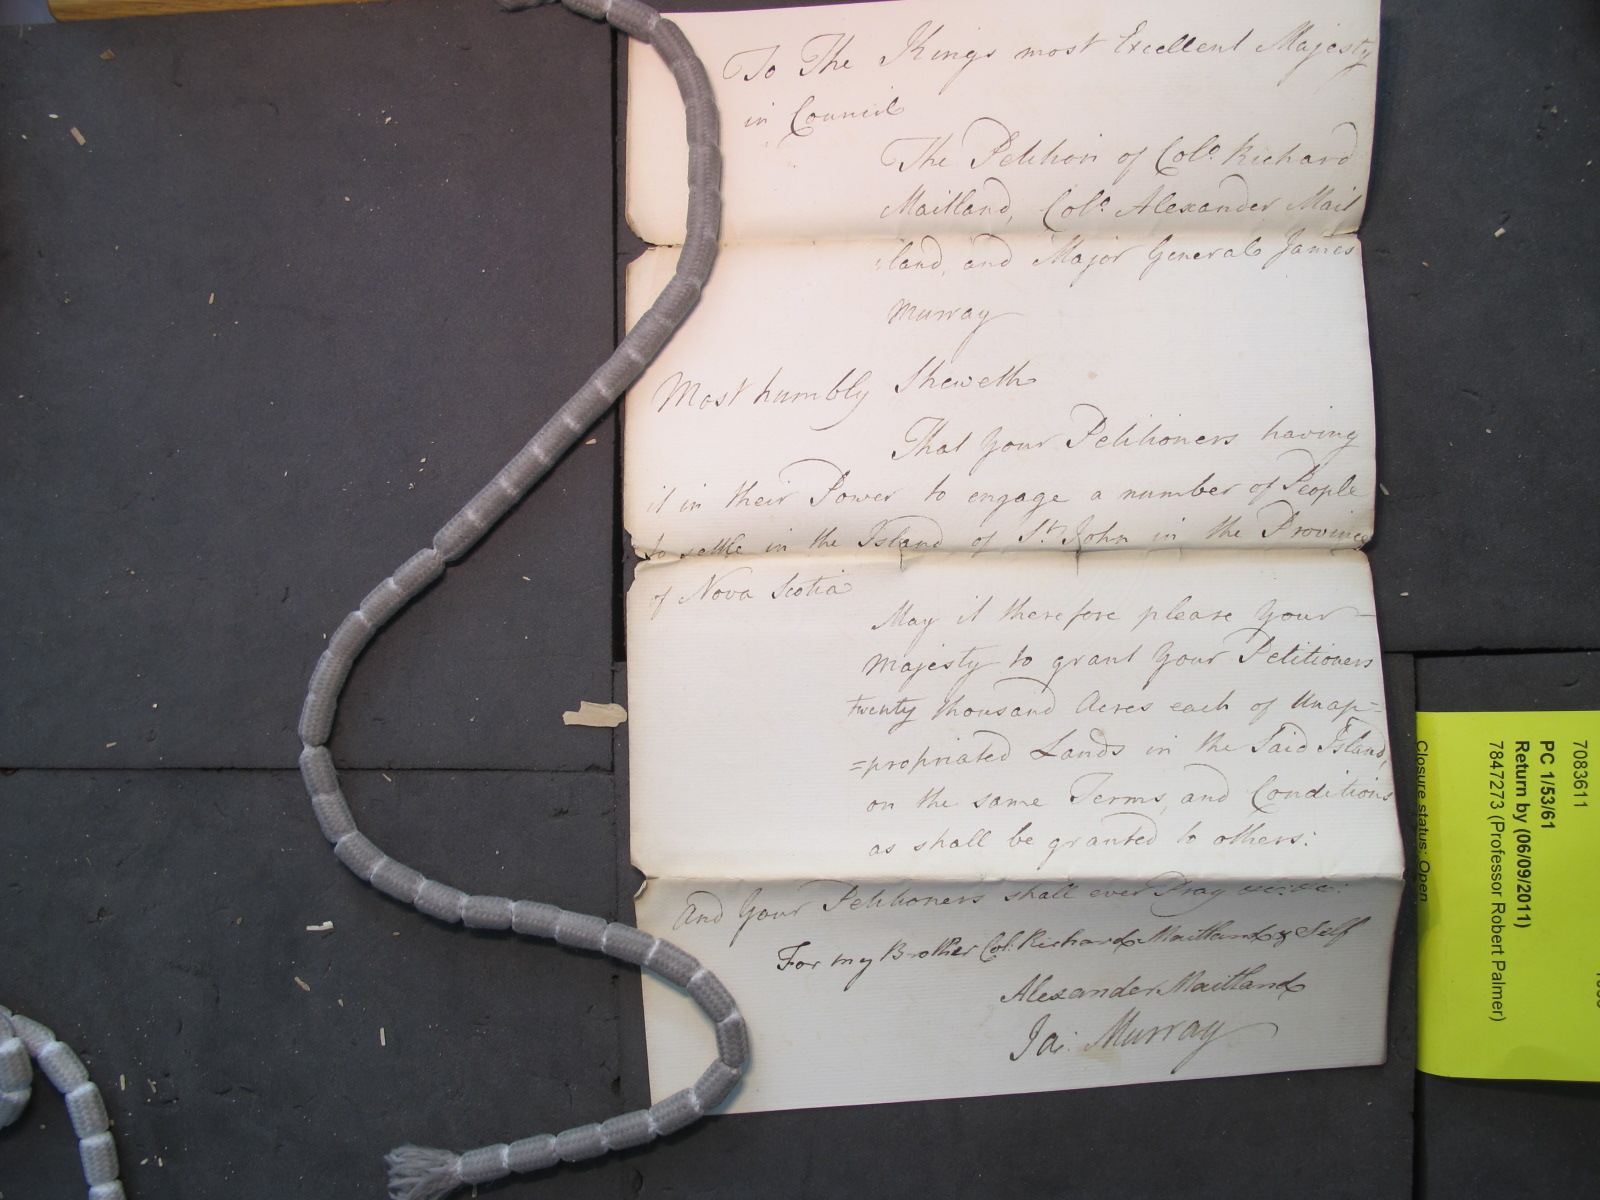 To The Kings most Excellent Majesty
in Council
The Petition of Colº. Richard
Maitland, Colº. Alexander Mait
land, and Major General James
Murray
Most humbly Sheweth
That Your Petitioners having
it in their Power to engage a number of People
to settle in the Island of St. John in the Province
of Nova Scotia
May it therefore please Your
Majesty to grant Your Petitioners
twenty thousand Acres each of Unap=
=propriated Lands in the Said Island,
on the same Terms, and Conditions
as shall be granted to others:
And Your Petitioners shall ever Pray &c: &c:
For my Brother Col: Richard Maitland & Self
Alexander Maitland
Ja: Murray
7083611
PC 1/53/61
Return by (06/09/2011)
7847273 (Professor Robert Palmer)
Closure status: Open